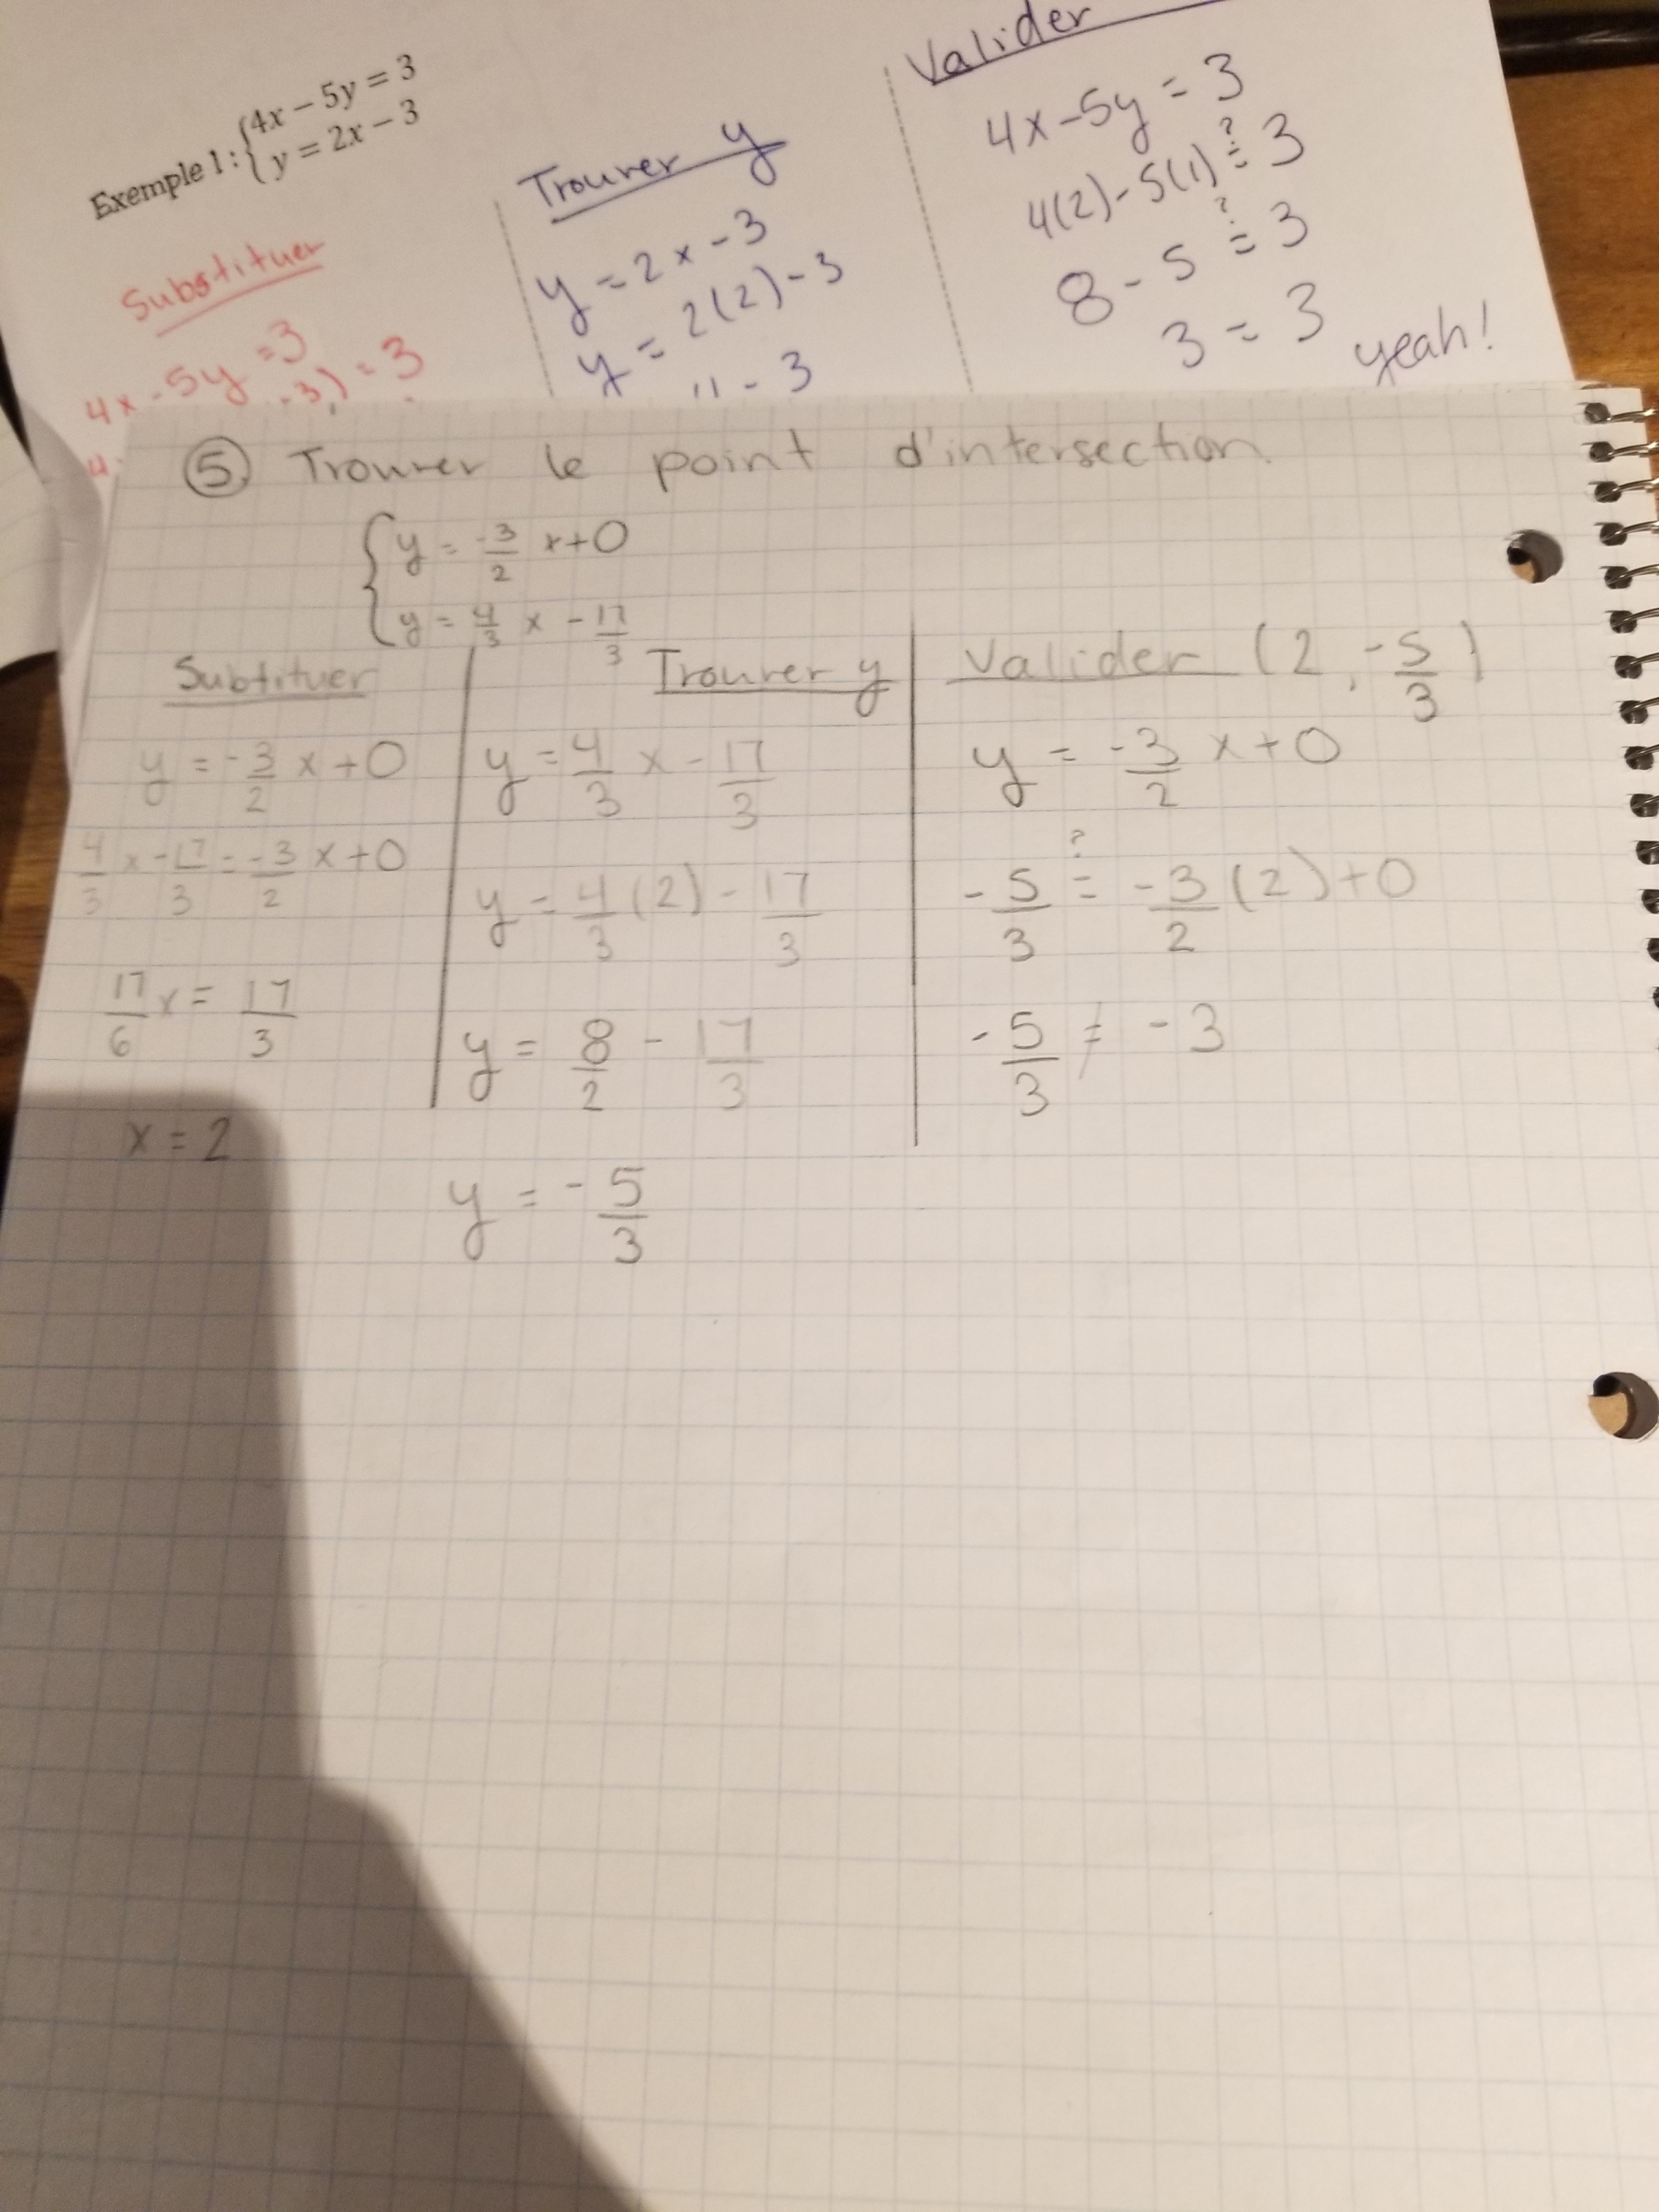 Exemple 1: { 4x − 5y = 3
y = 2x − 3
Substituer
4x - 5y = 3
-3) = 3
4
Trouver y
y = 2x - 3
y = 2(2) - 3
- 3
Valider
4x - 5y = 3
4(2) - 5(1) ≟ 3
8 - 5 ≟ 3
3 = 3
yeah!
⑤ Trouver le point d'intersection.
{ y = -3/2 x + 0
y = 4/3 x - 17/3
Subtituer
y = -3/2 x + 0
4/3 x - 17/3 = -3/2 x + 0
17/6 x = 17/3
x = 2
Trouver y
y = 4/3 x - 17/3
y = 4/3 (2) - 17/3
y = 8/2 - 17/3
y = -5/3
Valider (2, -5/3)
y = -3/2 x + 0
-5/3 ≟ -3/2 (2) + 0
-5/3 ≠ -3